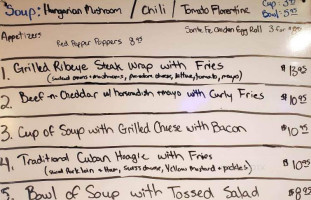 Soup: Hungarian Mushroom / Chili / Tomato Florentine
Cup: 3.
Bowl: 5.
Appetizers
Red Pepper Poppers 8.95
Santa Fe Chicken Egg Roll 3 for
1. Grilled Ribeye Steak Wrap with Fries $13.95
(sauteed onions + mushrooms, cheese, lettuce, tomato, mayo)
2. Beef-n-Cheddar w/ horseradish mayo with Curly Fries $10.95
3. Cup of Soup with Grilled Cheese with Bacon $10.95
4. Traditional Cuban Hoagie with Fries $10.95
(Sliced Pork Loin + Ham, Swiss cheese, Yellow Mustard + pickles)
5. Bowl of Soup with Tossed Salad $8.95